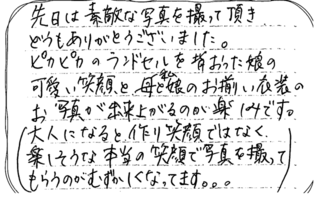 先日は素敵な写真を撮って頂き
どうもありがとうございました。
ピカピカのランドセルを背おった娘の
可愛い笑顔と母と娘のお揃い衣装の
お写真が出来上がるのが楽しみです。
大人になると作り笑顔ではなく
楽しそうな本当の笑顔で写真を撮って
もらうのがむずかしくなってます。。。